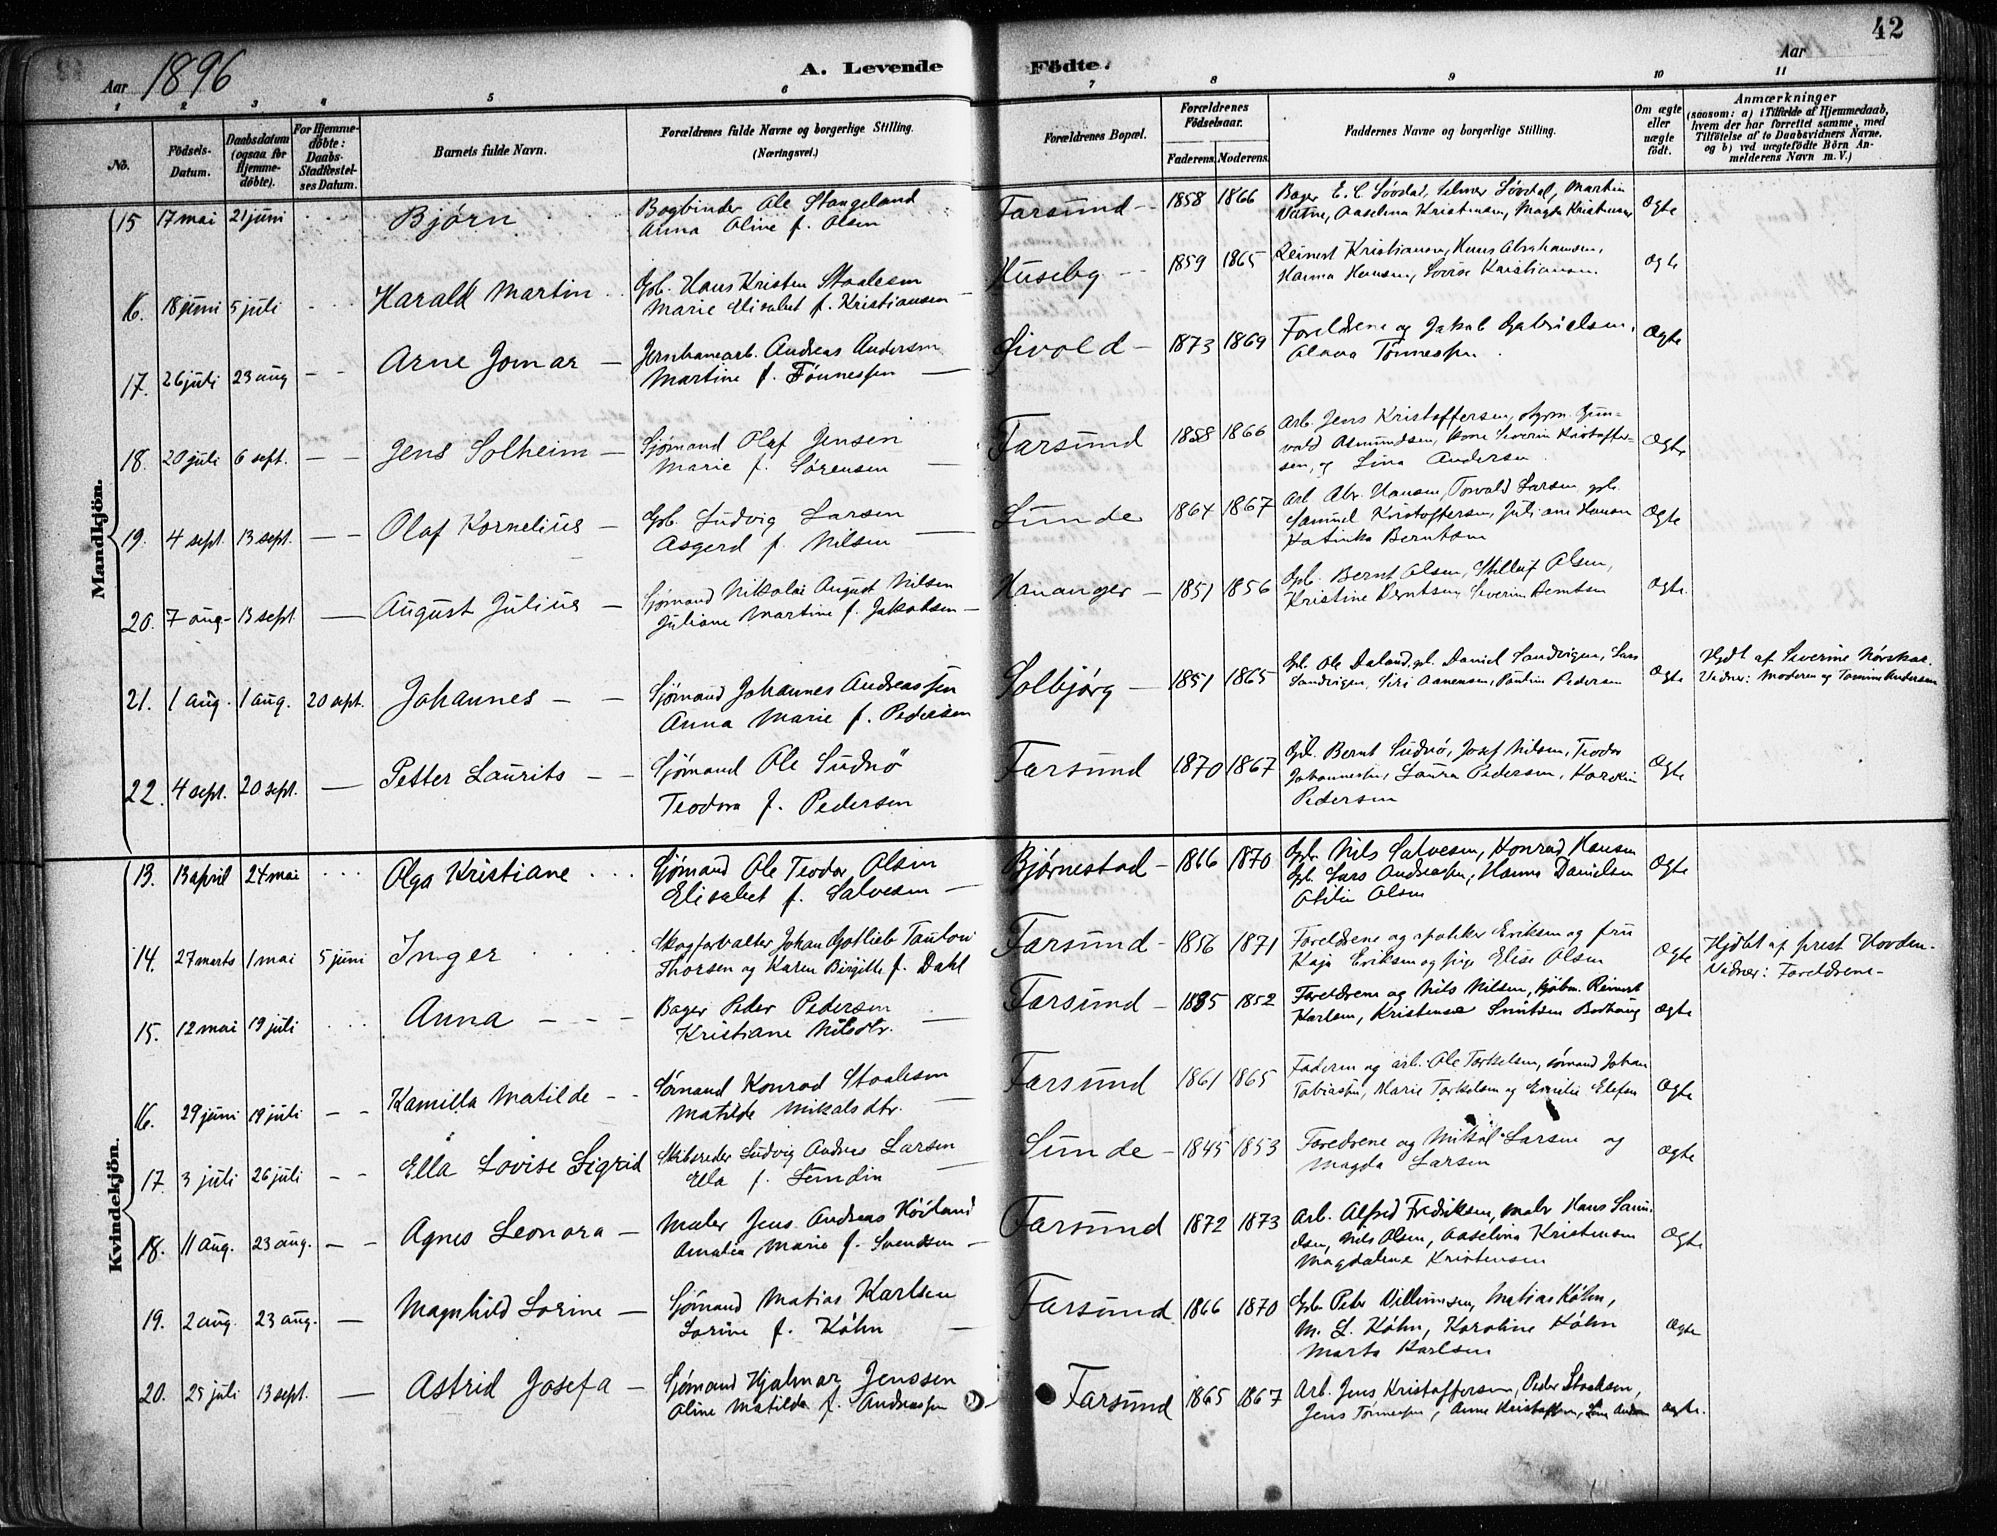 42
Aar 1896
A. Levende Födte.
Aar
1 2 3 4 5 6 7 8 9 10 11
No.
Födsels-Datum.
Daabsdatum (ogsaa for Hjemmedöbte).
For Hjemmedöbte: Daabs-Stadfæstelses Datum.
Barnets fulde Navn.
Forældrenes fulde Navne og borgerlige Stilling. (Næringsvei.)
Forældrenes Bopæl.
Forældrenes Födselsaar.
Faderens. Moderens.
Faddernes Navne og borgerlige Stilling.
Om ægte eller uægte födt.
Anmærkninger
(saasom: a) i Tilfælde af Hjemmedaab, hvem der har forrettet samme, med Tilföielse af to Daabsvidners Navne, og b) ved uægtefödte Börn Anmelderens Navn m. V.)
Mandkjön.
15 17 mai 21 juni Bjørn Bogbinder Ole Stangeland Farsund 1858 1866 Bager E. C. Løvdal, Selmer Løvdal, Martin Ægte
Anna Oline f. Olsen Aaselina Kristensen, Magda Kristensen
16. 18 juni 5 juli Harald Martin Gb. Hans Kristen Staalesen Huseby 1859 1865 Reinert Kristiansen, Hans Abrahamsen, Ægte
Marie Elisabet f. Kristiansen Hanna Hansen, Lovise Kristiansen
17. 26 juli 23 aug Arne Jomar Jernbanearb. Andreas Andersen 1873 1869 Foreldrene og Jakob Gabrielsen, Ægte
Martine f. Tønnessen Tønnessen
18. 20 juli 6 sept. Jens Solheim Sjømand Olaf Jensen Farsund 1858 1866 Arb. Jens Kristoffersen, Gun-
Marie f. Sørensen vald Asmundsen, Severin Kristoffer- Ægte
sen, og Lina Andersen
19. 4 sept. 13 sept. Olaf Kornelius Gb. Ludvig Larsen Lunde 1864 1867 Arb. Abr. Hansen, Torvald Larsen gb. Ægte
Asgerd f. Nilsen Samuel Kristoffersen, Juliane Hansen
Katinka Berntsen
20. 7 aug. 13 sept. August Julius Sjømand Nikolai August Nilsen Hananger 1851 1856 Gb. Bernt Olsen, Olsen, Ægte
Juliane Martine f. Jakobsen Kristine Berntsen, Severin Berntsen
21. 1 aug. 1 aug. 20 sept. Johannes Sjømand Johannes Andreassen Solbjørg 1851 1865 Gb. Ole Daland, gb. Daniel Sandvigen, Lars Ægte Hjdt. af Severine
Anna Marie f. Pedersen Sandvigen, Siri Aanensen, Pauline Pedersen Vidner: Moderen og Andersen
22. 4 sept. 20 sept. Petter Laurits Sjømand Ole Sudnø Farsund 1870 1867 Gb. Bernt Sudnø, Josef Nilsen, Teodor Ægte
Teodora f. Pedersen Johannessen, Laura Pedersen,
Pedersen
Kvindekjön.
13. 13 april 24 mai Olga Kristiane Sjømand Ole Teodor Olsen Bjørnestad 1866 1870 Gb. Nils Salvesen, Konrad Hansen Ægte
Elisabet f. Salvesen Gb. Lars Andreassen, Hanna Danielsen
Otilie Olsen
14. 27 marts 1 mai 5 juni Inger Skogforvalter Johan Gotlieb Farsund 1856 1871 Foreldrene og apotheker Eriksen og fru Ægte Hjdbt af prest Hovden.
Thorsen og Karen Birgitte f. Dahl Kaja Eriksen og pige Elise Olsen Vidner: Foreldrene
15. 12 mai 19 juli Anna Bager Peder Pedersen Farsund 1852 Foreldrene og Nils Nilsen, Kjøbm. Reinert Ægte
Kristiane Nilsdtr. Karlsen,
16. 29 juni 19 juli Kamilla Matilde Sømand Konrad Staalesen Farsund 1861 1865 Faderen og arb. Ole Torkelsen, sømand Johan Ægte
Matilde Mikalsdtr. Tobiassen, Marie Torkelsen og Emilie
17. 3 juli 26 juli Ella Lovise Sigrid Skibsreder Ludvig Andreas Larsen Lunde 1845 1853 Foreldrene og Mikal Larsen og Ægte
Ella f. Lundin Magda Larsen
18. 11 aug. 23 aug. Agnes Leonora Maler Jens Andreas Høiland Farsund 1872 1873 Arb. Alfred Fredriksen, maler Hans Samu- Ægte
Amalia Marie f. Svendsen elsen, Nils Olsen, Aaselina Kristensen
Magdalene Kristensen
19. 2 aug. 23 aug. Magnhild Lorine Sjømand Matias Karlsen Farsund 1866 1870 Gb. Peter Villumsen, Matias Køhn, Ægte
Lorine f. Køhn M. L. Køhn, Karoline Køhn
Marta Karlsen
20. 25 juli 13 sept. Astrid Josefa Sjømand Hjalmar Jenssen Farsund 1865 1867 Arb. Jens Kristoffersen, Peder Staalesen, Ægte.
Oline Matilde f. Andreassen Jens Tønnessen, Anne Kristoffersen,